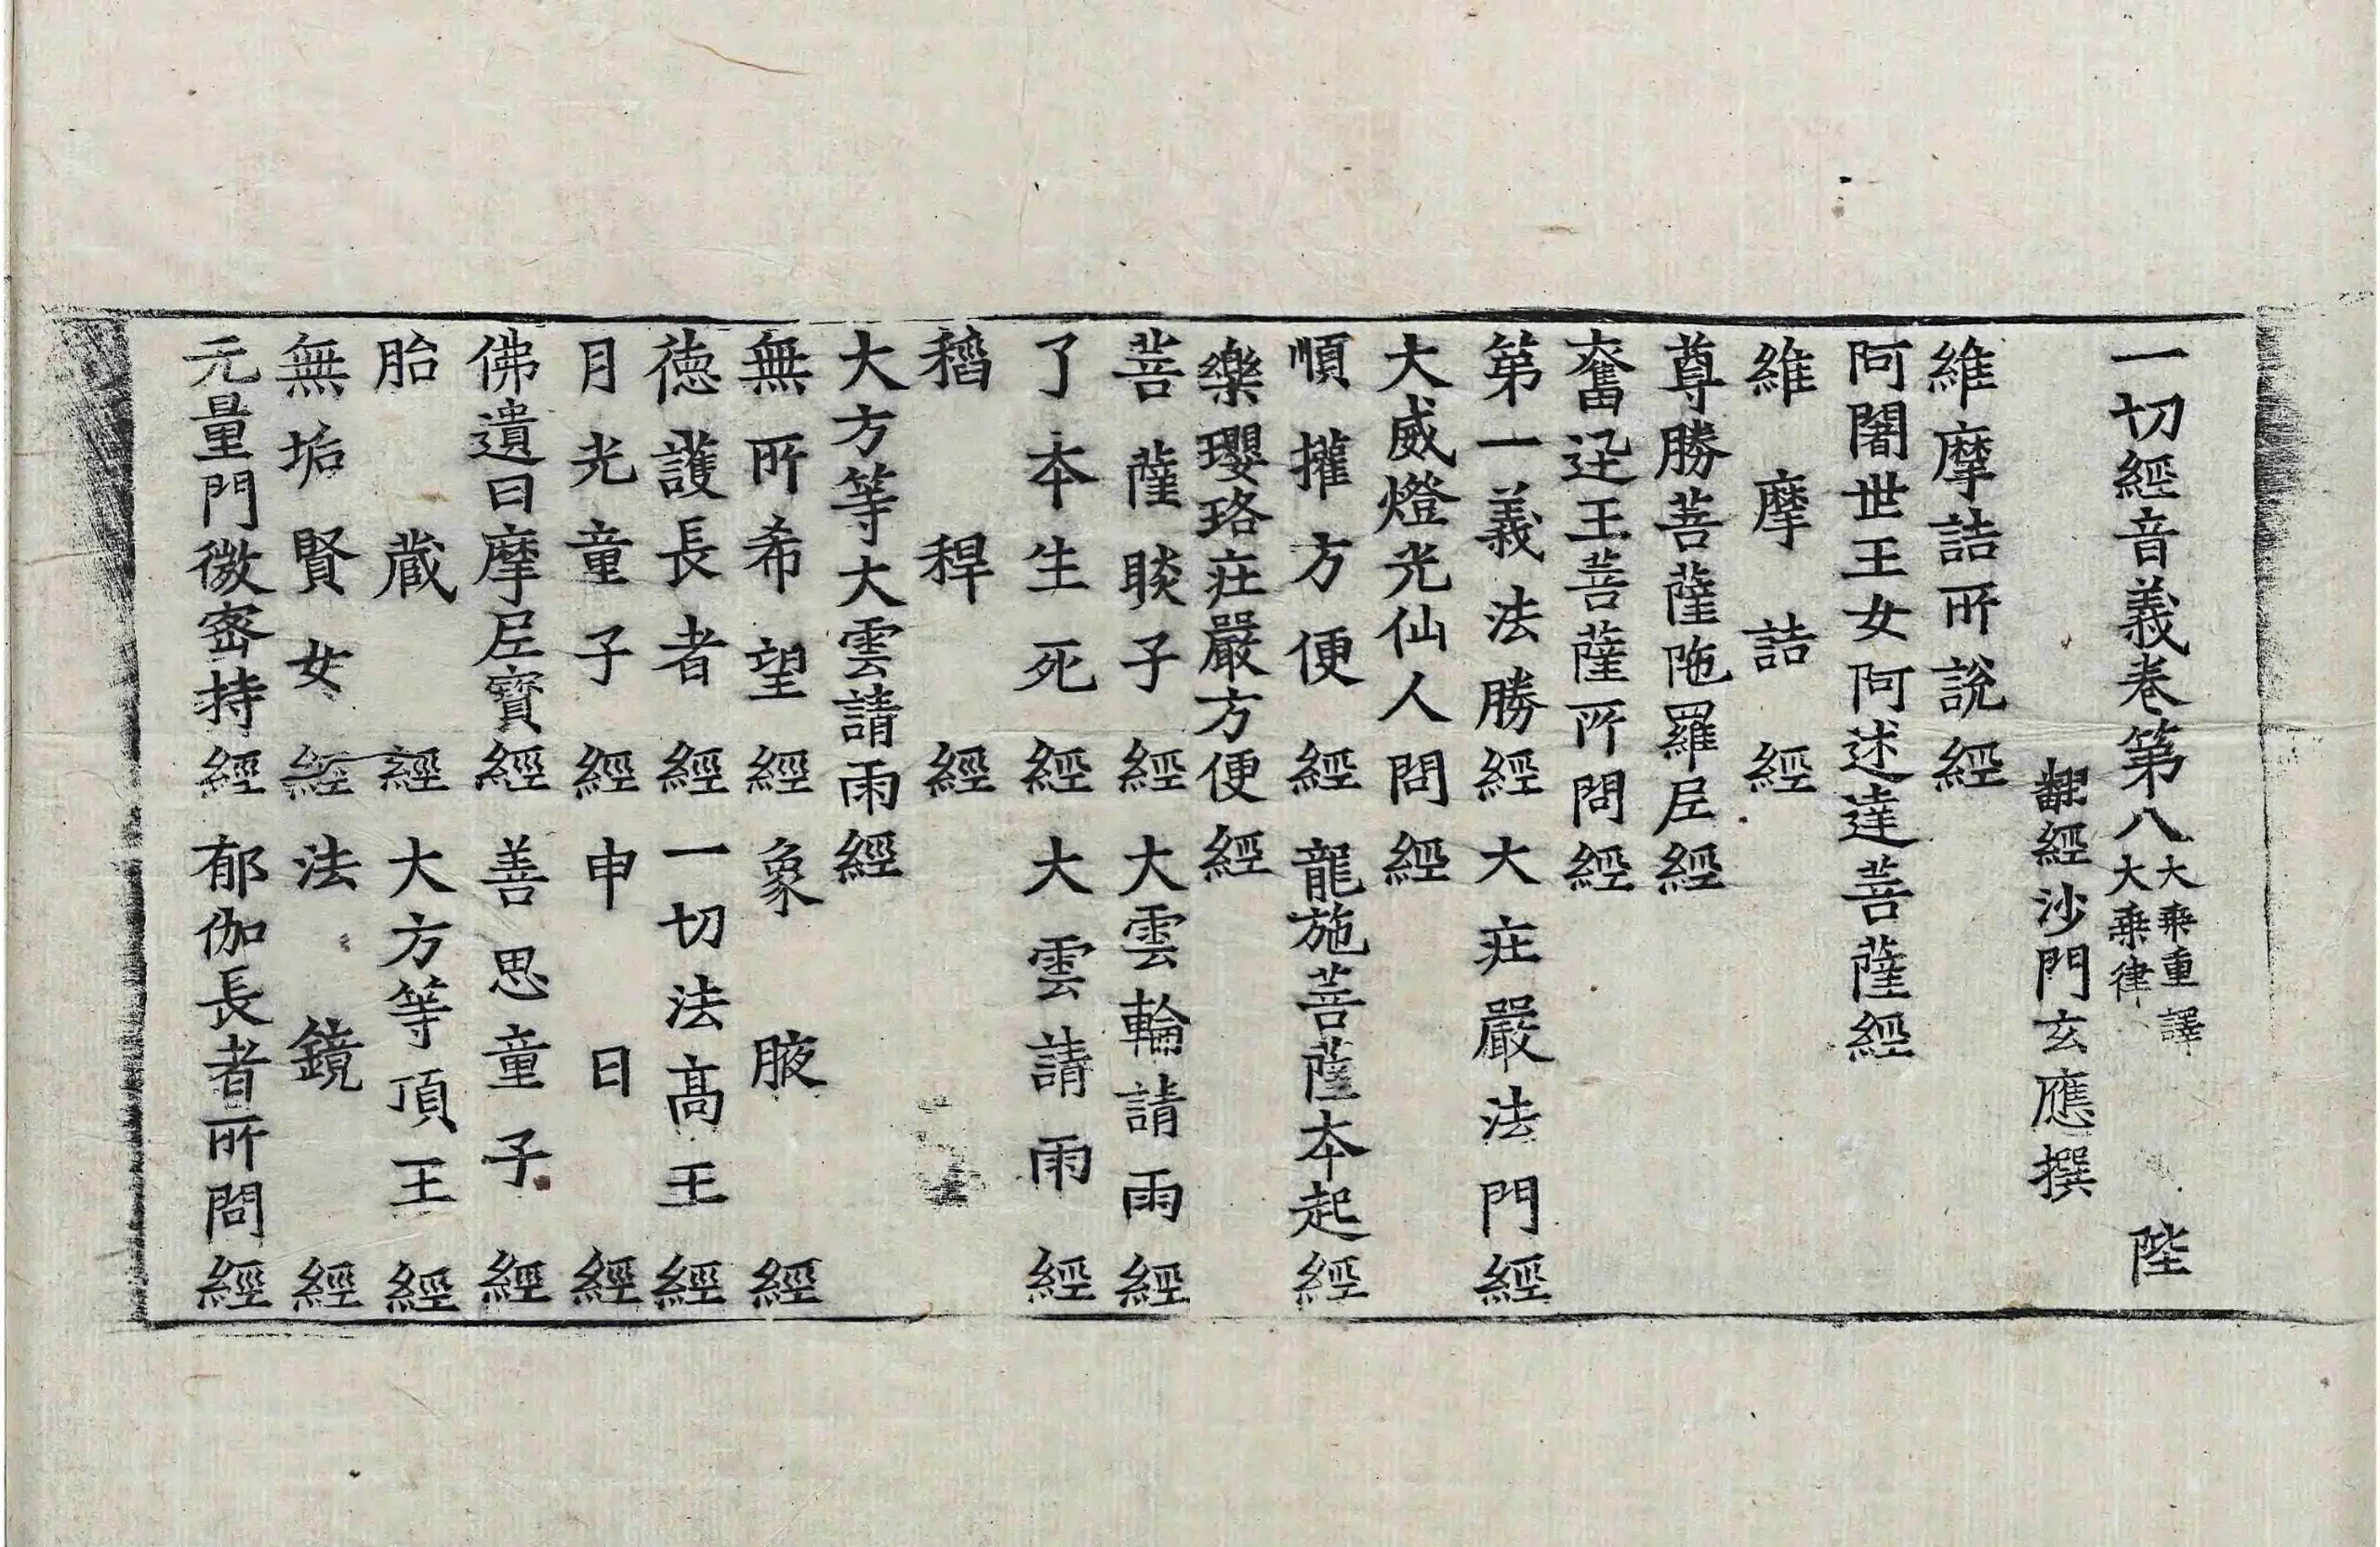 一切經音義卷第八 大乘重譯 大乘律 陛
翻經沙門玄應撰
維摩詰所說經
阿闍世王女阿述達菩薩經
維摩詰經
尊勝菩薩陁羅尼經
奮迅王菩薩所問經
第一義法勝經 大庄嚴法門經
大威燈光仙人問經
順攉方便經 龍施菩薩本起經
樂瓔珞庄嚴方便經
菩薩睒子經 大雲輪請雨經
了本生死經 大雲請雨經
稻稈經
大方等大雲請雨經
無所希望經 象腋經
德護長者經 一切法高王經
月光童子經 申日經
佛遺曰摩尼寶經 善思童子經
胎藏經 大方等頂王經
無垢賢女經 法鏡經
元量門微密持經 郁伽長者所問經